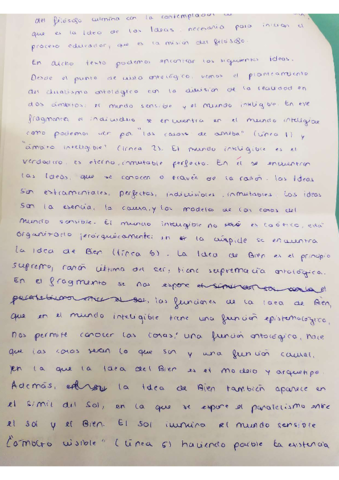 del filósofo culmina con la contemplación de
que es la Idea de las Ideas necesaria para iniciar el
proceso educador, que es la misión del filósofo.
En dicho texto podemos encontrar las siguientes ideas.
Desde el punto de vista ontológico, vemos el planteamiento
del dualismo ontológico con la división de la realidad en
dos ámbitos: el mundo sensible y el mundo inteligible. En este
fragmento el individuo se encuentra en el mundo inteligible
como podemos ver por "las cosas de arriba" (línea 1) y
"ámbito inteligible" (línea 2). El mundo inteligible es el
verdadero, es eterno, inmutable perfecto. En él se encuentran
las Ideas, que se conocen a través de la razón. Las Ideas
son extramentales, perfectas, indivisibles, inmutables. Las ideas
son la esencia, la causa, y los modelos de las cosas del
mundo sensible. El mundo inteligible no es caótico, está
organizado jerárquicamente: en la cúspide se encuentra
la Idea de Bien (línea 6). La Idea de Bien es el principio
supremo, razón última del ser; tiene supremacía ontológica.
En el fragmento se nos expone
las funciones de la Idea de Bien,
que en el mundo inteligible tiene una función epistemológica,
nos permite conocer las cosas; una función ontológica, hace
que las cosas sean lo que son y una función causal,
en la que la Idea del Bien es el modelo y arquetipo
Además, la Idea de Bien también aparece en
el símil del Sol, en la que se expone el paralelismo entre
el sol y el Bien. El Sol ilumina el mundo sensible
("ámbito visible" (línea 5) haciendo posible la existencia